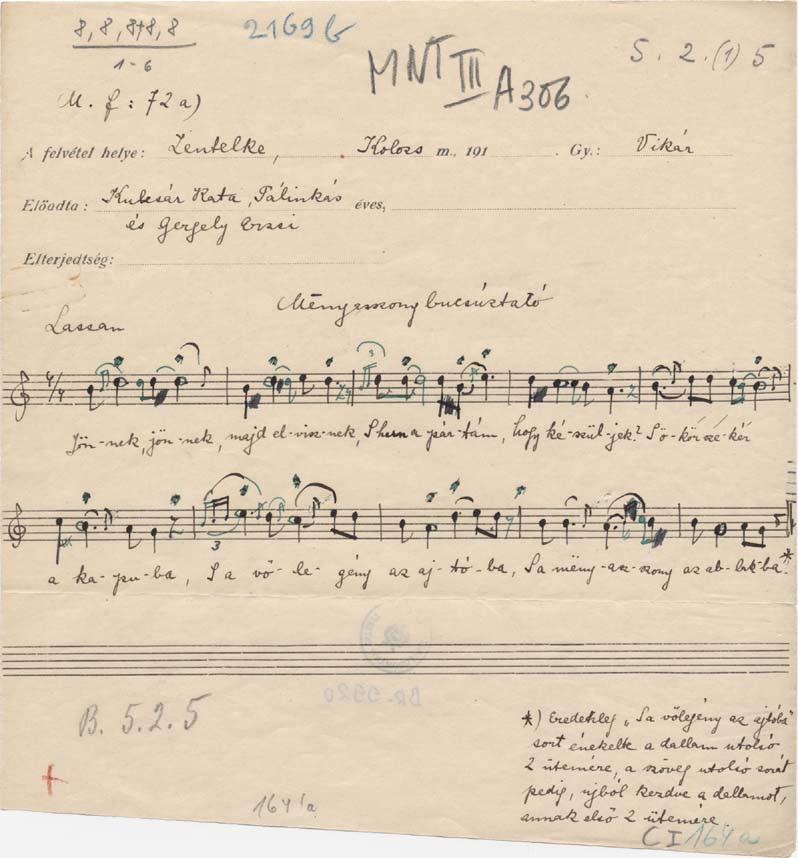 8, 8, 8+8, 8
1-6
21696
MNT III A306
5. 2. (1) 5
M. f: 72 a)
A felvétel helye: Zentelke, Kolozs m., 191 Gy.: Vikár
Előadta: Kulcsár Kata, Pálinkás éves,
és Gergely Erzsi
Elterjedtség:
Mënyasszony bucsúztató
Lassan
Jön-nek, jön-nek, majd el-visz-nek, S hun a pár-tám, hogy ké-szül-jek? S ö-kör sze-kér
3
a ka-pu-ba, S a vő-le-gény az aj-tó-ba, S a mëny-asz-szony az ab-lak-ba *
B. 5. 2. 5
*) Eredetileg „S a vőlegény az ajtóba"
sort énekelte a dallam utolsó
2 ütemére, a szöveg utolsó sorát
pedig, újból kezdve a dallamot,
annak első 2 ütemére.
164/a
C I 164 a